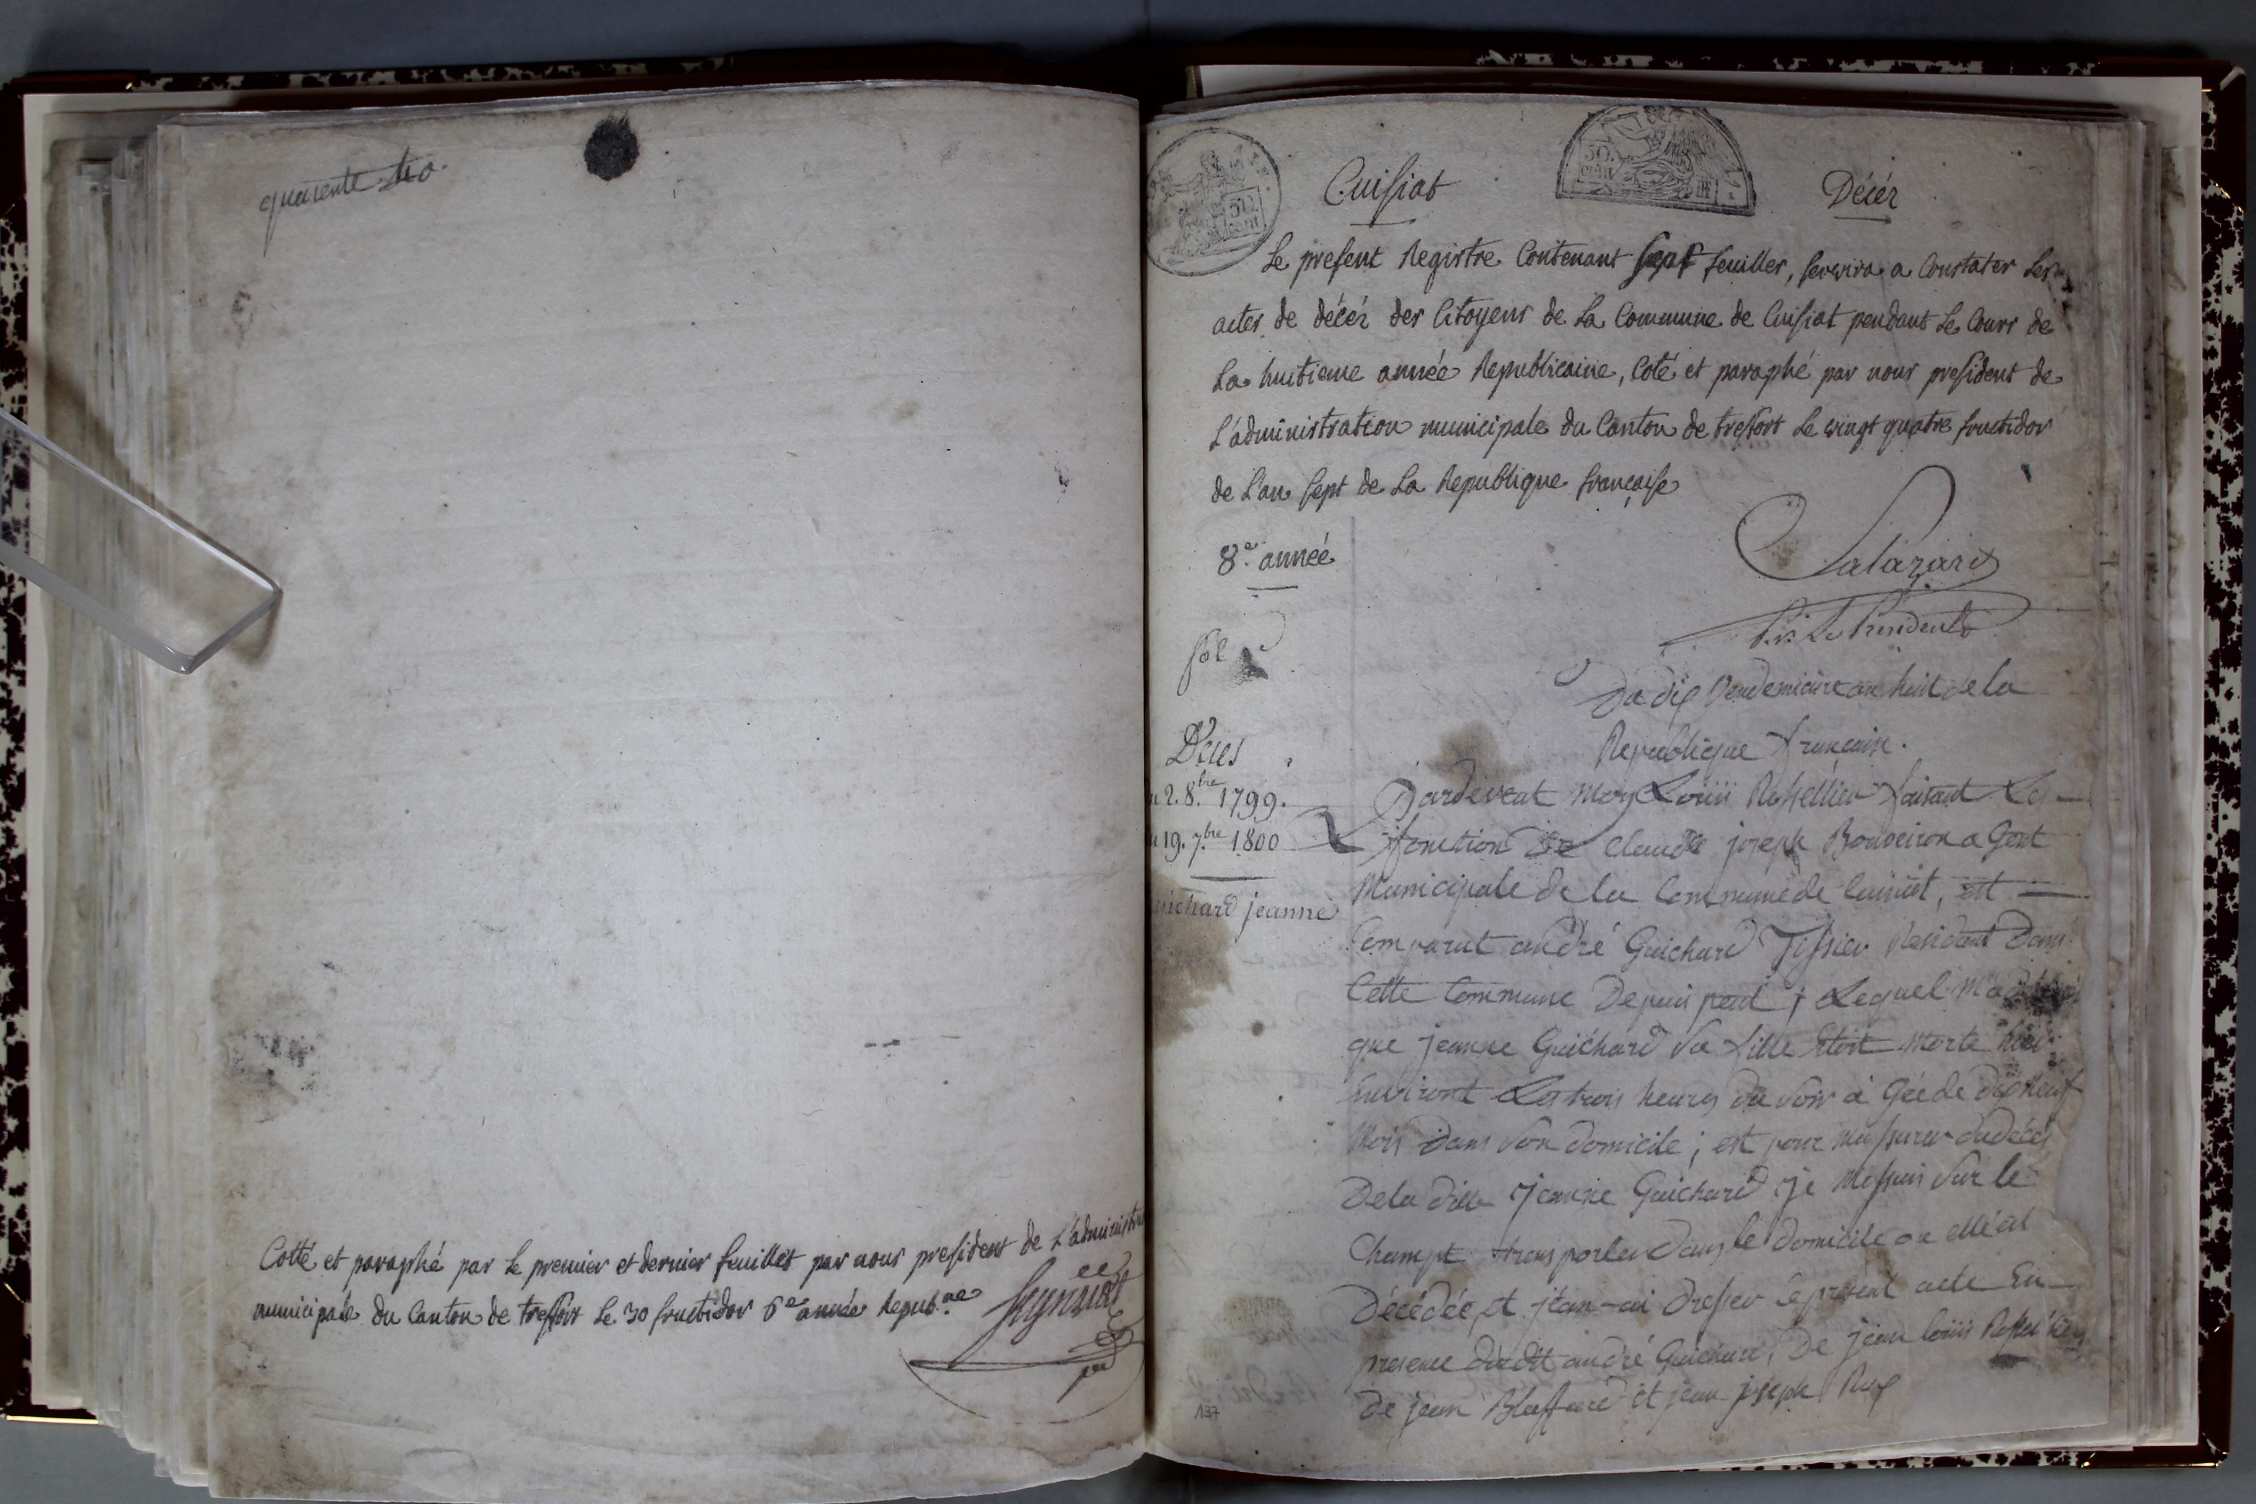 quarente 40.
Cotté et paraphé par le premier et dernier feuillet par nous president de L'administra
municipale du Canton de tresfort le 30 fructidor 6e année Republ.ne
50.
Cuisiat
Décèr
Le present Registre Contenant sept feuilles, servira a Constater Les
actes de décér des Citoyens de La Commune de Cuisiat pendant Le Cours de
La huitieme année Republicaine, Coté et paraphé par nous president de
L'administration municipale du Canton de tresfort Le vingt quatre fructidor
de L'an sept de La Republique françaisse
8e. année
Salazard
P.r Le Président
fol
Du dix Vendemiaire an huit de la
Republique francaise.
Décès
u 2. 8.bre 1799.
u 19. 7.bre 1800
uichard jeanne
Pardevent Moy Louis faisant Les
fonction de Claude joseph Bouveiron a Gent
Municipale de la Commune de Cuisiat, est
Comparut andré Guichard Tissier Residant dans
Cette Commune Depuis peud ; Lequel
que jeanne Guichard sa fille Etoit Morte hier
Environt Les trois heures du soir a Gée de dix neuf
Mois dans son domicile ; est pour Massurer du décès
De la dite jeanne Guichard je Messuis sur le
Champt transporter dans le domicile ou elle est
Décédée, et jean-ai dresser Le present acte En
presence dudit andré Guichard, De jean louis
de jean et jean joseph
137